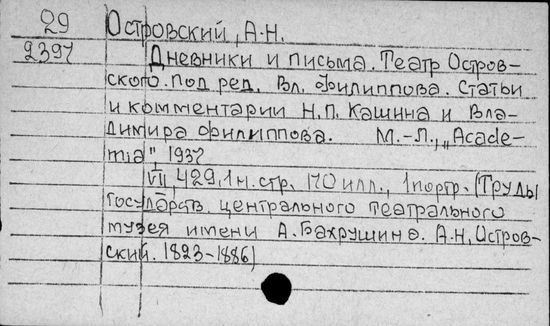 29 Островский, А.Н.
2397 Дневники и письма. Театр Остров-
ского. Под ред. Вл. Филиппова. Статьи
и комментарии Н.П. Кашина и Вла-
димира Филиппова. М.-Л., „Acade-
mia", 1937
VII, 429, 1 н. стр. 170 илл., 1 портр. (Труды
Государств. центрального театрального
музея имени А. Бахрушина. А.Н. Остров-
ский. 1823-1886)